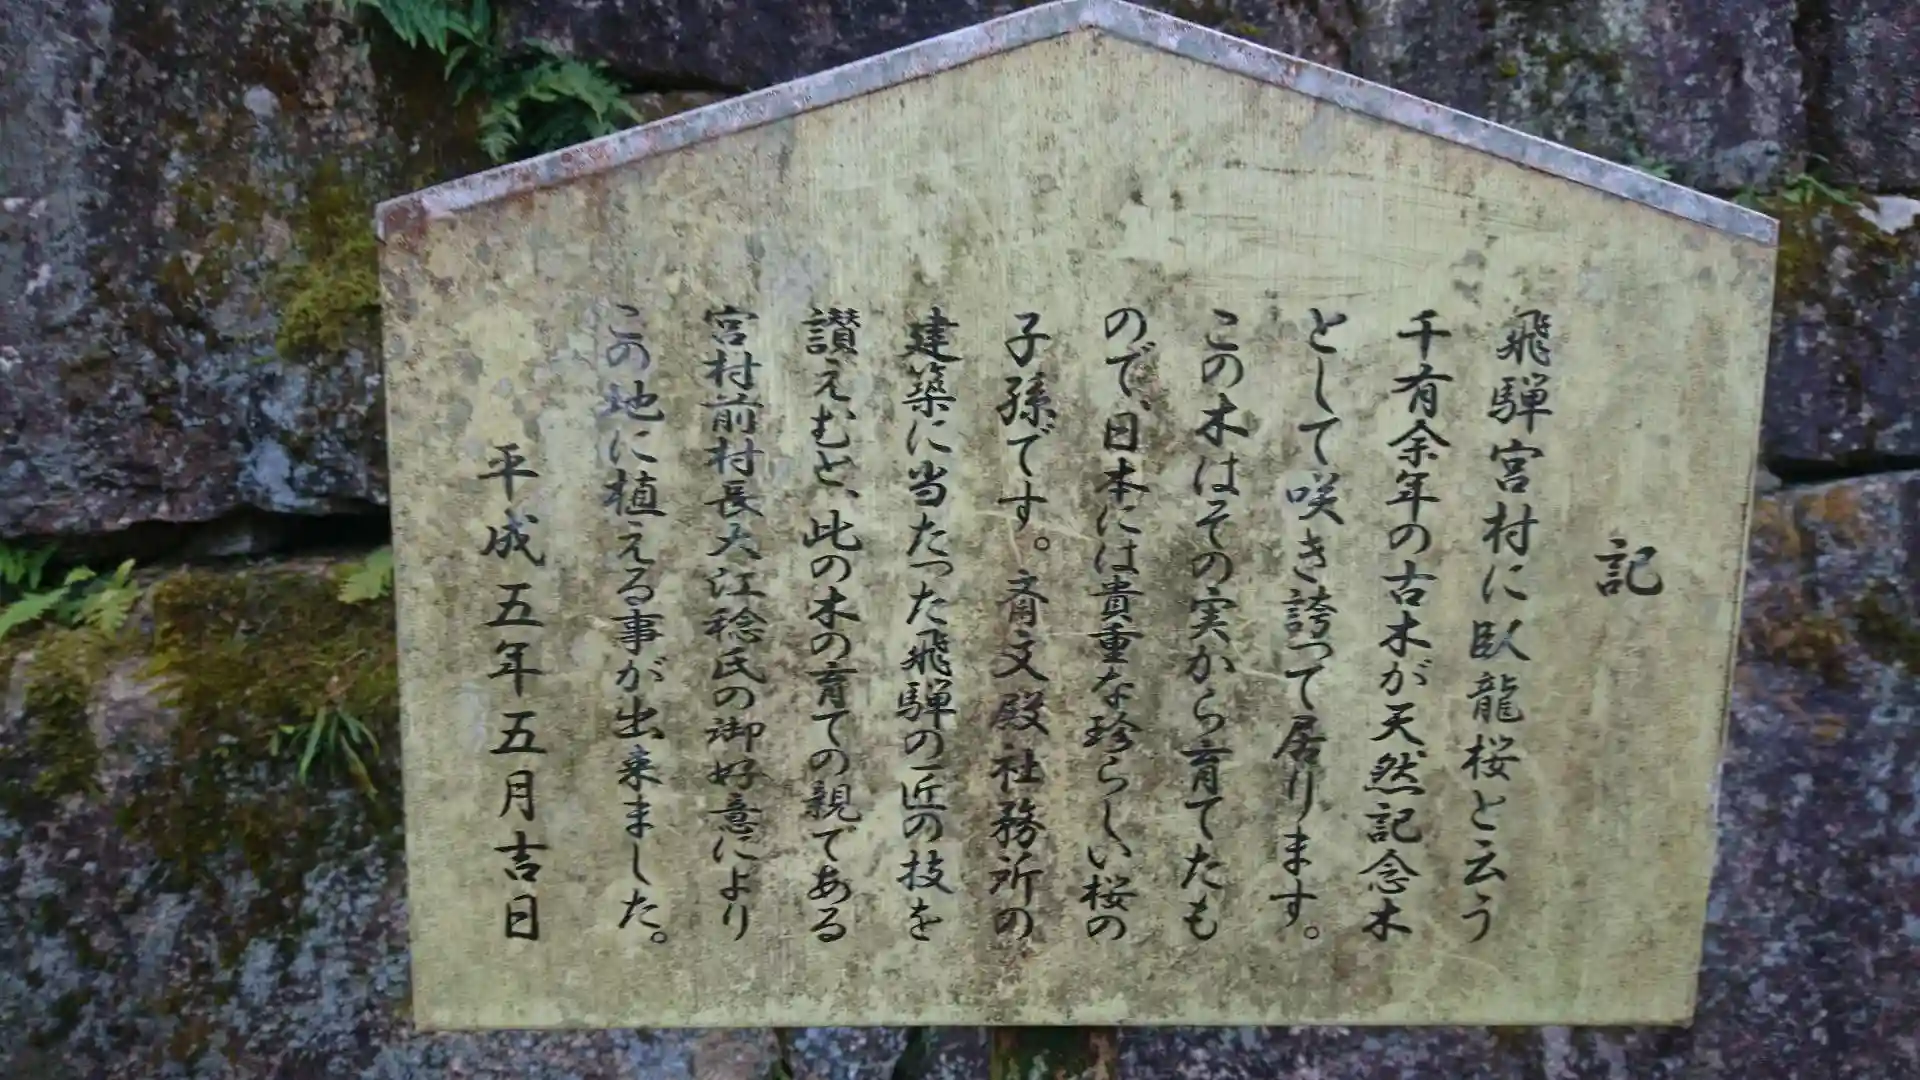 記
飛騨宮村に臥龍桜と云う
千有余年の古木が天然記念木
として咲き誇って居ります。
この木はその実から育てたも
ので、日本には貴重な珍らしい桜の
子孫です。斉文殿社務所の
建築に当たった飛騨の匠の技を
讃えむと、此の木の育ての親である
宮村前村長大江稔氏の御好意により
この地に植える事が出来ました。
平成五年五月吉日